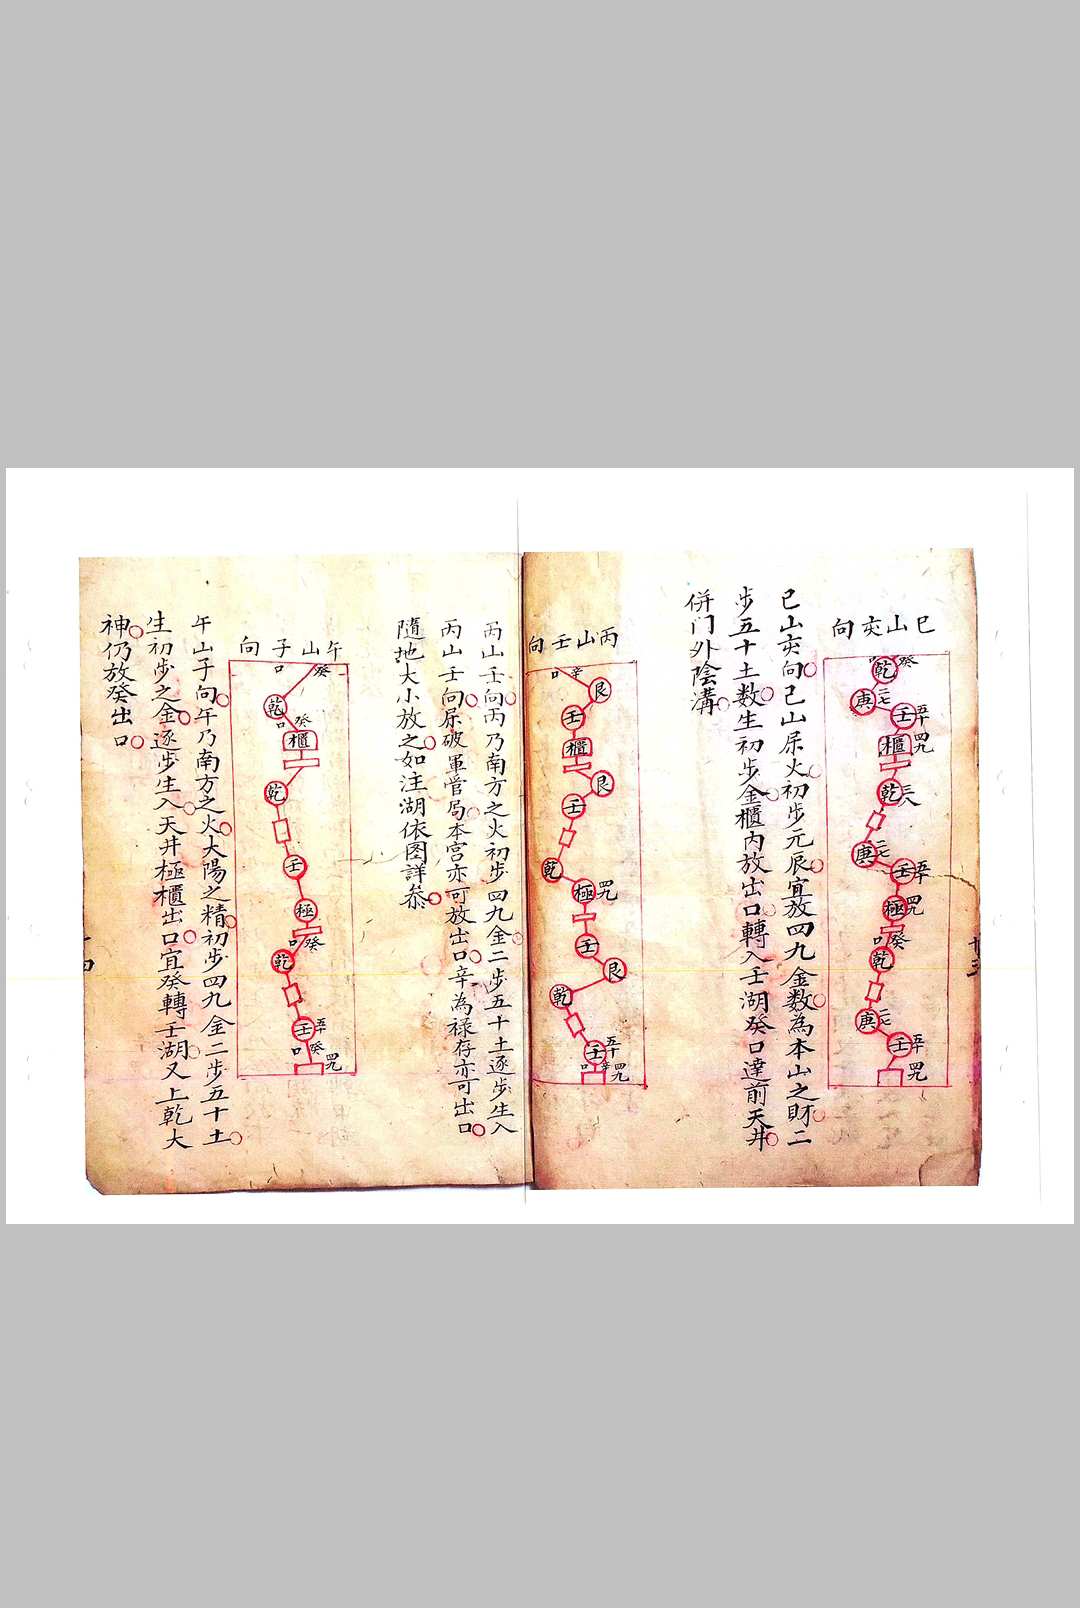 巳山亥向
癸
乾
口
庚
二七
壬
五十
四九
櫃
乾
三八
庚
二七
壬
五十
極
四九
口癸
乾
庚
二七
壬
五十
四九
巳山亥向巳山屬火初步元辰宜放四九金数為本山之財二
步五十土数生初步金櫃内放出口轉入壬湖癸口達前天井
併门外陰溝
丙山壬向
口辛
艮
壬
櫃
艮
壬
乾
極
四九
壬
艮
乾
壬
五十
口辛
四九
丙山壬向丙乃南方之火初步四九金二步五十土逐步生入
丙山壬向屬破軍管局本宮亦可放出口辛為禄存亦可出口
隨地大小放之如注湖依图詳叅
午山子向
口
癸
乾
癸
口
櫃
乾
壬
極
口癸
乾
壬
五十
口癸
四九
午山子向午乃南方之火太陽之精初步四九金二步五十土
生初步之金逐步生入天井極櫃出口宜癸轉壬湖又上乾大
神仍放癸出口